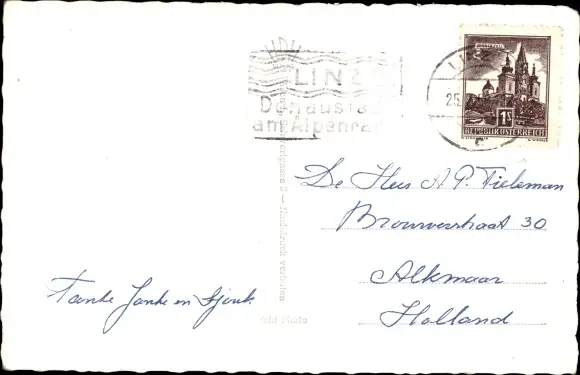 LINZ
Donaustadt
am Alpenrand
LINZ
25.
1S
REPUBLIK ÖSTERREICH
De Heer A.P. Tieleman
Brouwerstraat 30
Alkmaar
Holland
Tante Janke en Sjouk
Nachdruck verboten
Photo